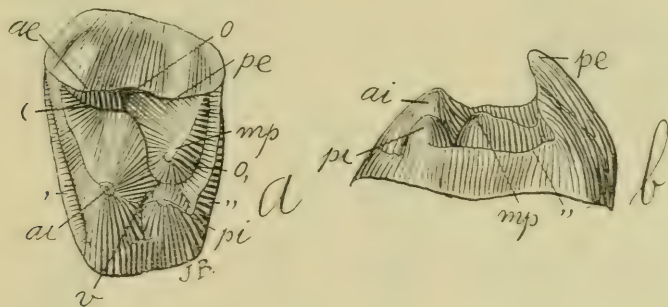 ae
o
pe
(
mp
o,
,
ai
"
pi
v
J.F.
a
ai
pe
pi
mp
"
b